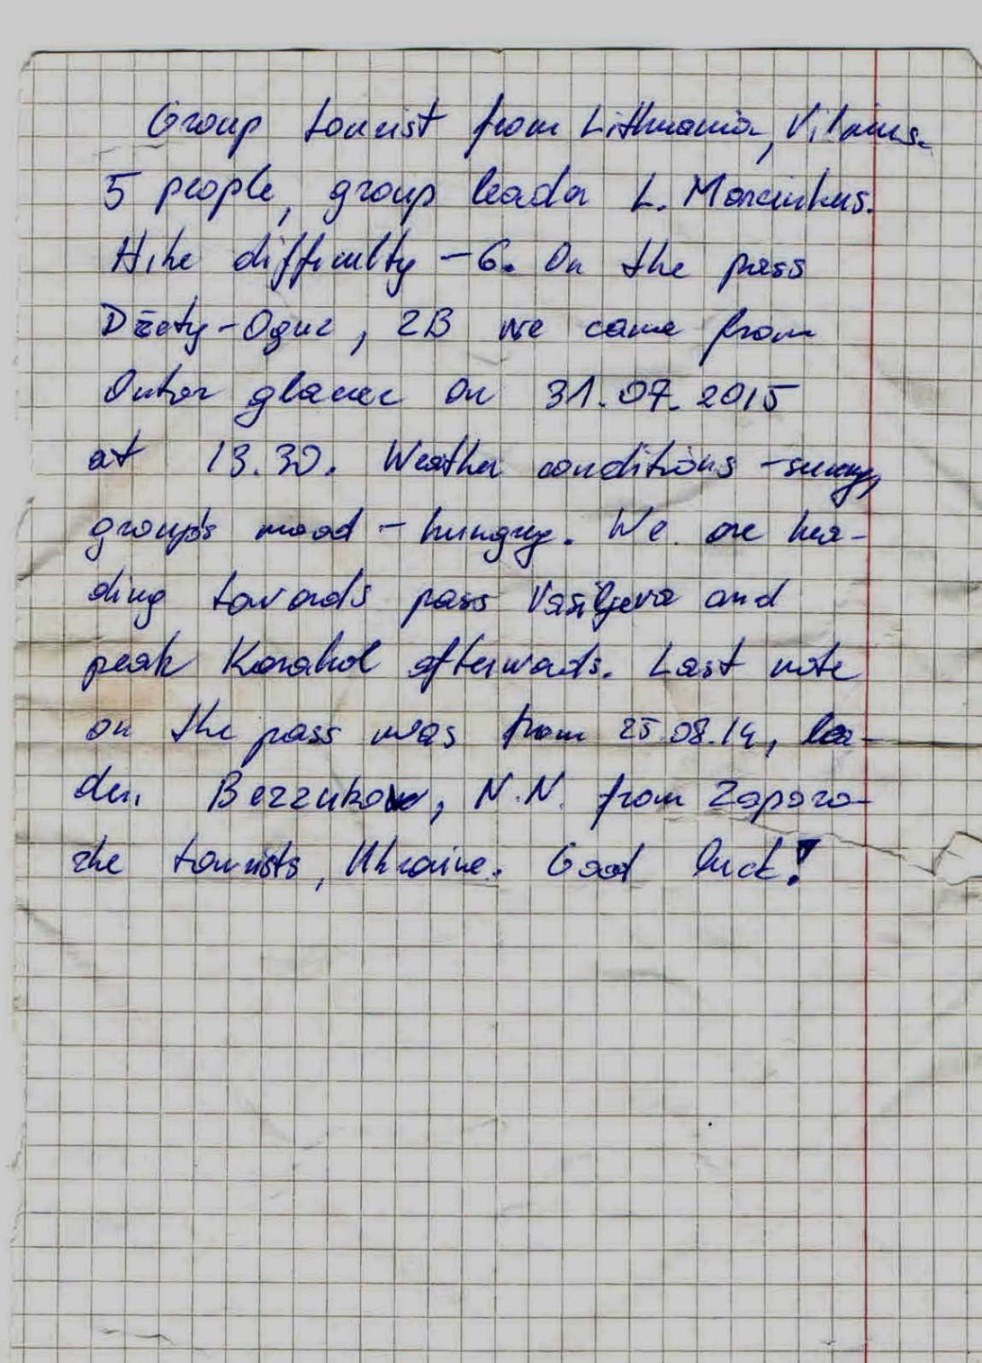 Group tourist from Lithuania, Vilnius.
5 people, group leader L. Marcinkus.
Hike difficulty – 6. On the pass
Džety-Oguz, 2B we came from
Ontor glacier on 31.07.2015
at 13.30. Weather conditions – sunny,
group's mood – hungry. We are hea-
ding towards pass Vasiljeva and
peak Karakol afterwards. Last note
on the pass was from 25.08.14, lea-
der, N.N. from Zaporo-
zhe tourists, Ukraine. Good luck!